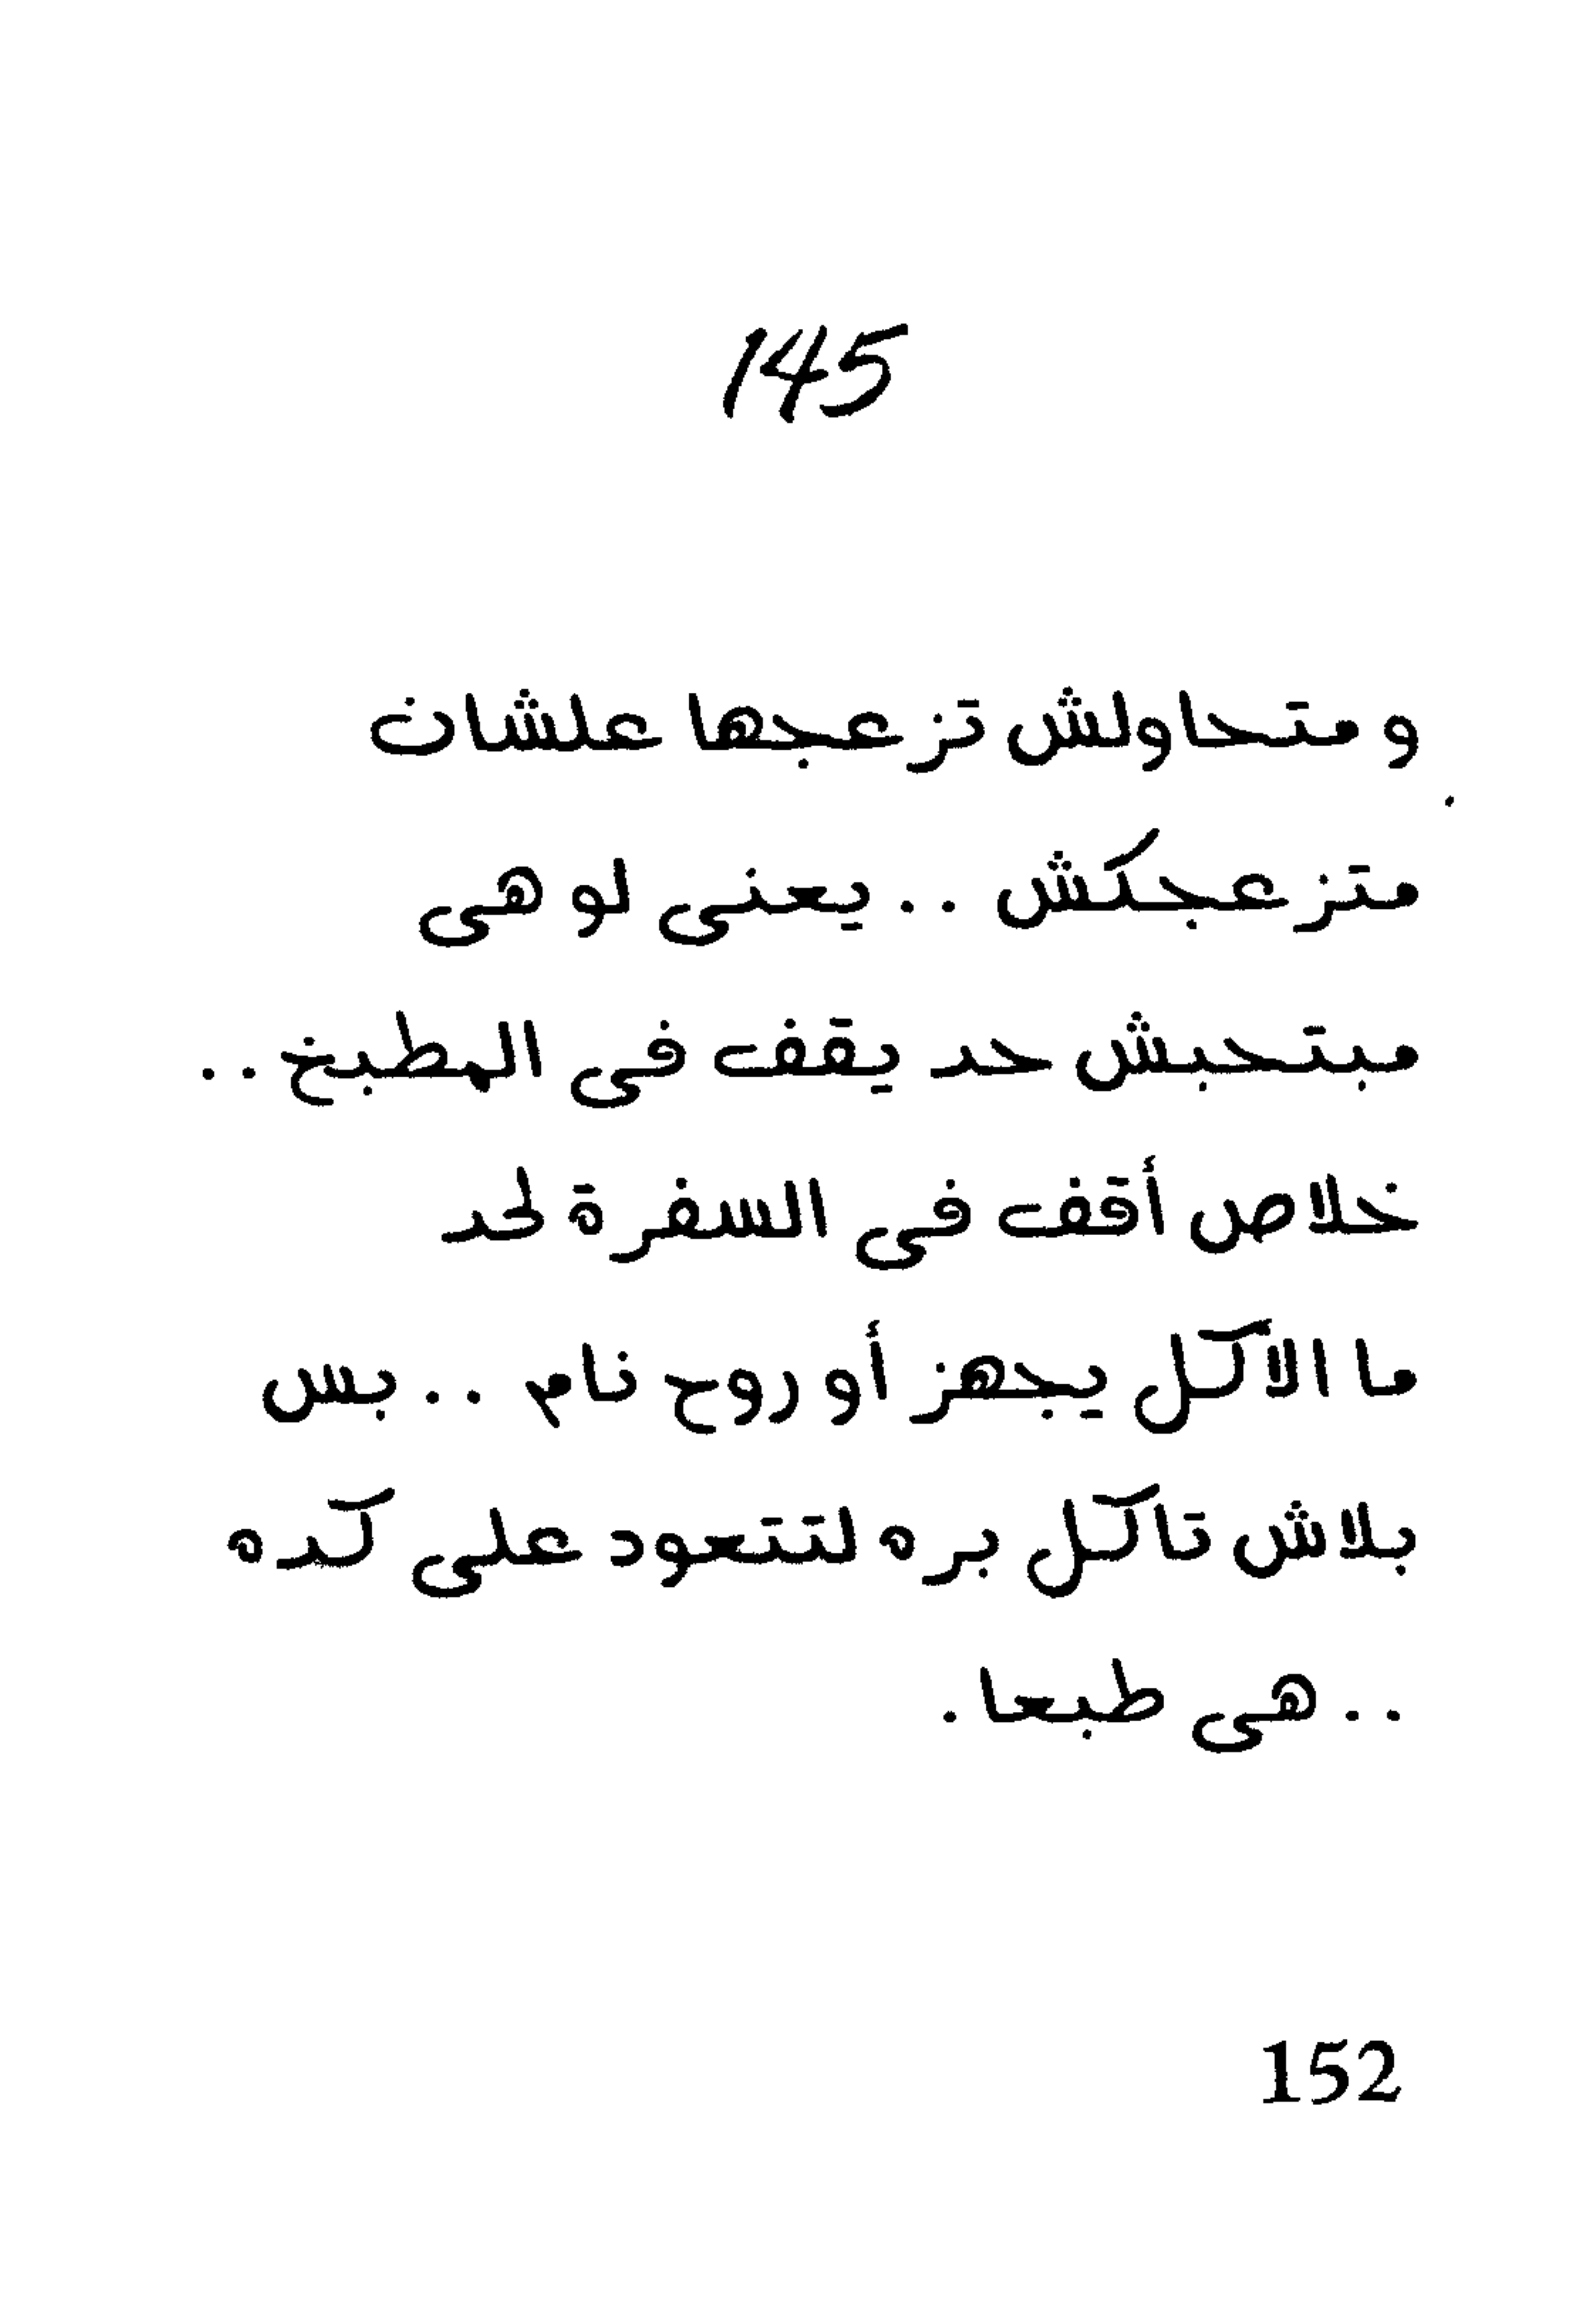 145
و متحاولش تزعجها علشان
متزعجكش .. يعنى لو هى
مبتحبش حد يقف فى المطبخ ..
خلاص أقف فى السفرة لحد
ما الاكل يجهز أو روح نام .. بس
بلاش تاكل بره لتتعود على كده
.. هى طبعا.
152